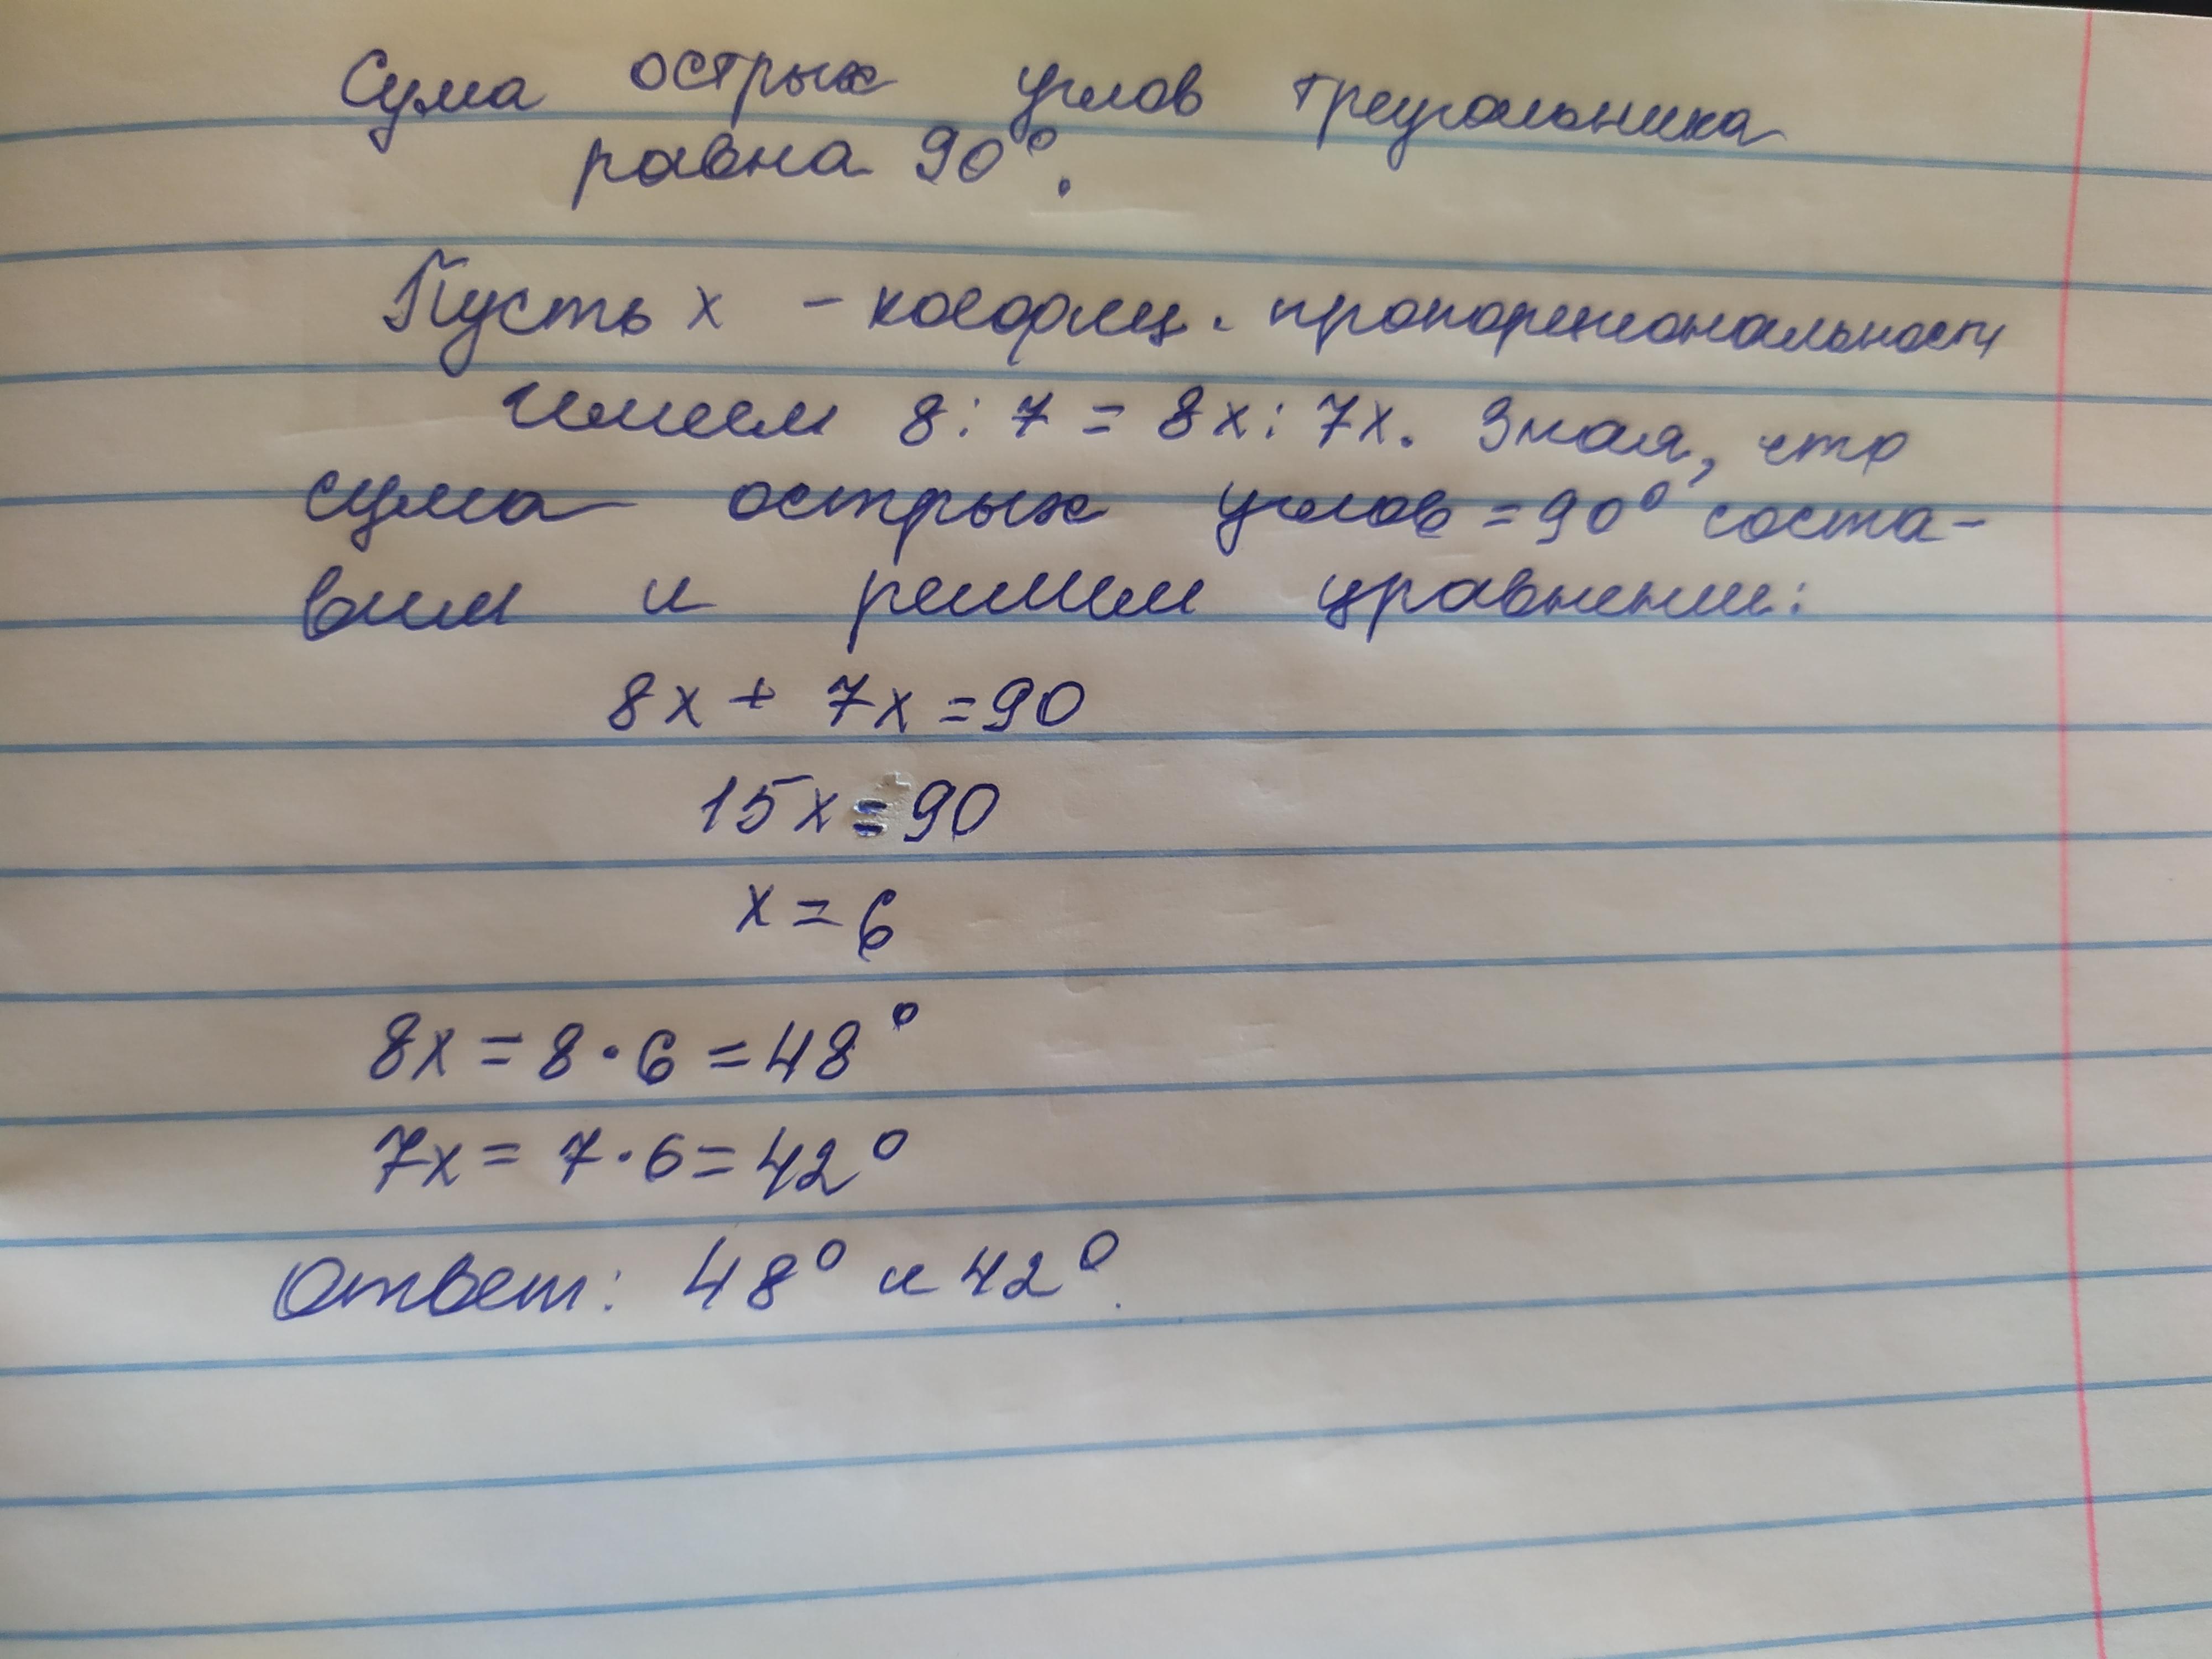 Сума острых углов треугольника
равна 90°.
Пусть x - коєфиц. пропорциональности
имеем 8:7 = 8x:7x. Зная, что
сума острых углов = 90° соста-
вим и решим уравнение:
8x + 7x = 90
15x = 90
x = 6
8x = 8·6 = 48°
7x = 7·6 = 42°
Ответ: 48° и 42°.